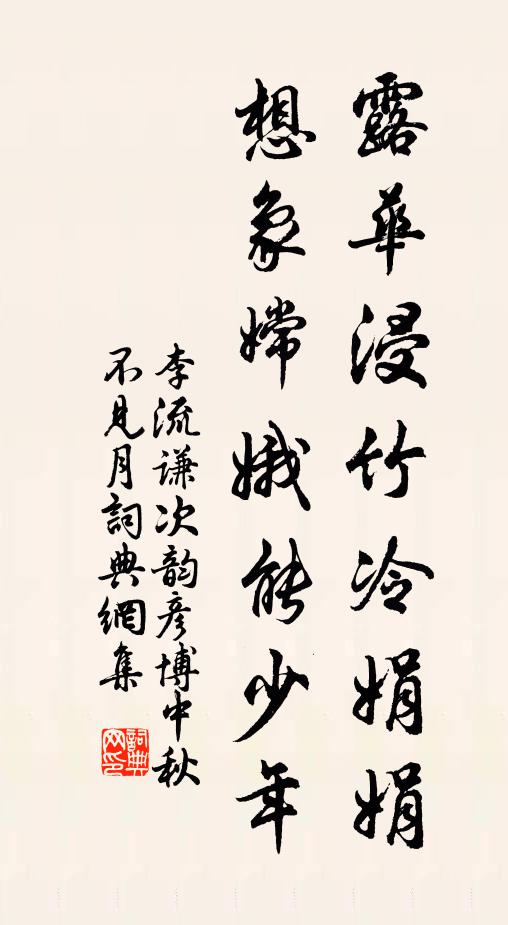 露華浸竹冷娟娟
想象嫦娥能少年
李流谦次韵彦博中秋
不見月詞典網集
詞典网印